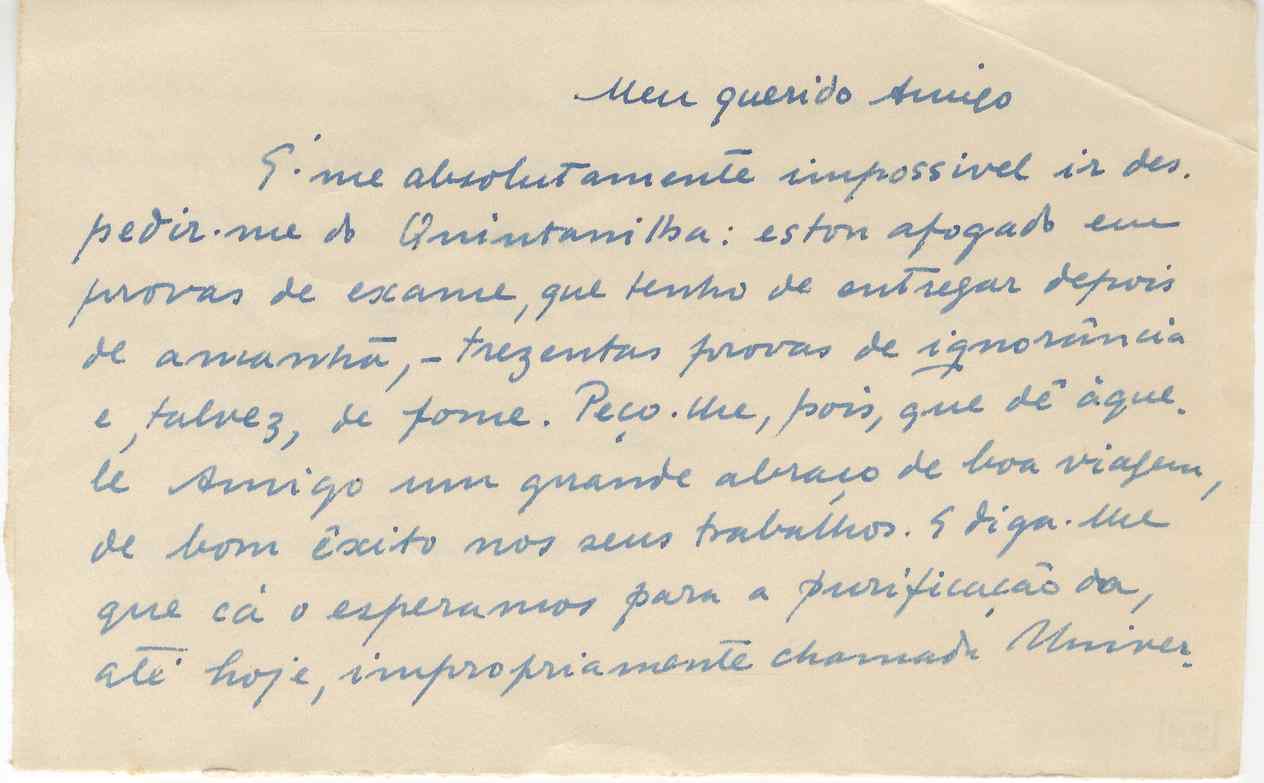 Meu querido Amigo
É-me absolutamente impossivel ir des-
pedir-me do Quintanilha: estou afogado em
provas de exame, que tenho de entregar depois
de amanhã, - trezentas provas de ignorância
e, talvez, de fome. Peço-lhe, pois, que dê àque-
le Amigo um grande abraço de boa viagem,
de bom êxito nos seus trabalhos. E diga-lhe
que cá o esperamos para a purificação da,
até hoje, impropriamente chamada Univer-